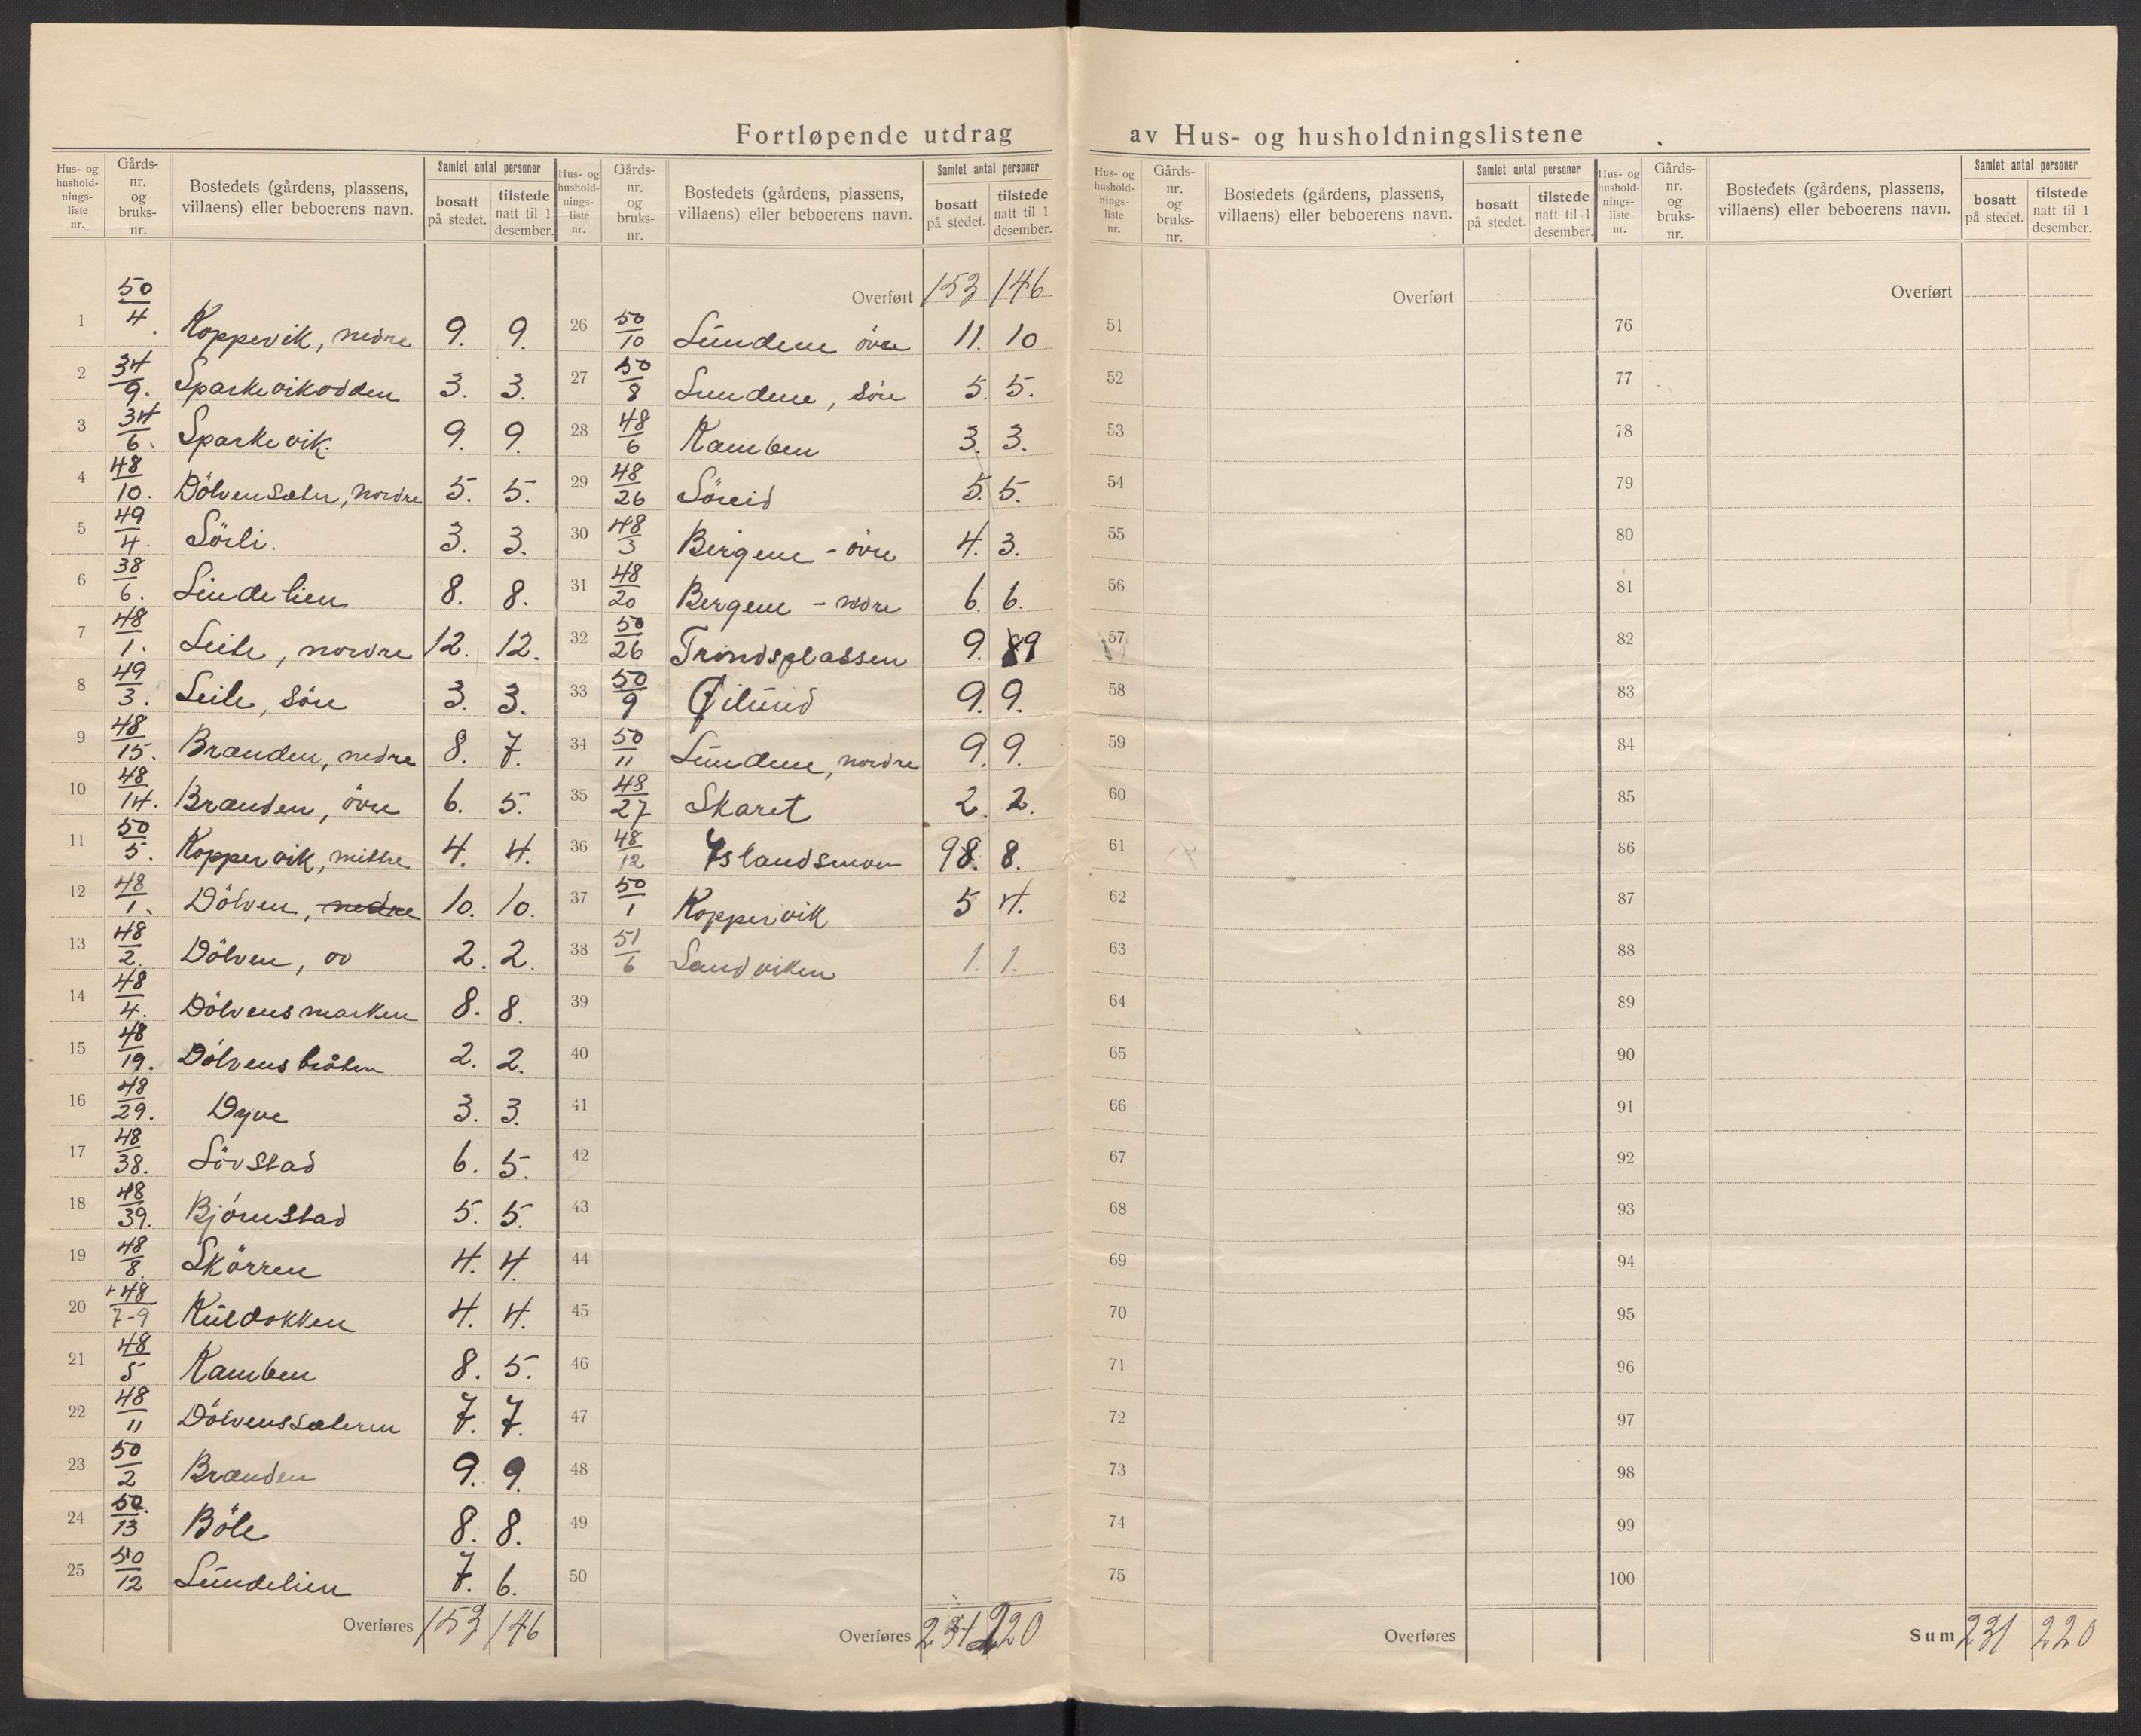 Fortløpende utdrag av Hus- og husholdningslistene
Hus- og hushold-nings-liste nr. | Gårds-nr. og bruks-nr. | Bostedets (gårdens, plassens, villaens) eller beboerens navn. | Samlet antal personer | bosatt på stedet. | tilstede natt til 1 desember.
1 50/4. Koppervik, nedre 9. 9.
2 34/9. Sparkevikodden 3. 3.
3 34/6. Sparkevik. 9. 9.
4 48/10. Dölvensæter, nordre 5. 5.
5 49/4. Sörli. 3. 3.
6 38/6. Lindelien 8. 8.
7 48/1. Leite, nordre 12. 12.
8 49/3. Leite, söre 3. 3.
9 48/15. Brænden, nedre 8. 7.
10 48/14. Brænden, övre 6. 5.
11 50/5. Koppervik, mittre 4. 4.
12 48/1. Dölven, nedre 10. 10.
13 48/2. Dölven, öv 2. 2.
14 48/4. Dölvensmarken 8. 8.
15 48/19. Dölvensbråten 2. 2.
16 48/29. Dyve 3. 3.
17 48/38. Lövstad 6. 5.
18 48/39. Björnstad 5. 5.
19 48/8. Skörren 4. 4.
20 +48/7-9 Kuldokken 4. 4.
21 48/5 Kamben 8. 5.
22 48/11 Dölvenssæteren 7. 7.
23 50/2 Brænden 9. 9.
24 50/13 Böle 8. 8.
25 50/12 Lundelien 7. 6.
Overføres 153 146
Hus- og hushold-nings-liste nr. | Gårds-nr. og bruks-nr. | Bostedets (gårdens, plassens, villaens) eller beboerens navn. | Samlet antal personer | bosatt på stedet. | tilstede natt til 1 desember.
Overført 153 146
26 50/10 Lundene övre 11. 10
27 50/8 Lundene, söre 5. 5.
28 48/6 Kamben 3. 3.
29 48/26 Söreid 5. 5.
30 48/3 Bergene - övre 4. 3.
31 48/20 Bergene - nedre 6. 6.
32 50/26 Trondsplassen 9. 89
33 50/9 Øilund 9. 9.
34 50/11 Lundene, nordre 9. 9.
35 48/27 Skaret 2. 2.
36 48/12 Yslandsmoen 98. 8.
37 50/1 Koppervik 5 4.
38 51/6 Sandviken 1. 1.
39
40
41
42
43
44
45
46
47
48
49
50
Overføres 231 220
Hus- og hushold-nings-liste nr. | Gårds-nr. og bruks-nr. | Bostedets (gårdens, plassens, villaens) eller beboerens navn. | Samlet antal personer | bosatt på stedet. | tilstede natt til 1 desember.
Overført
51
52
53
54
55
56
57
58
59
60
61
62
63
64
65
66
67
68
69
70
71
72
73
74
75
Overføres
Hus- og hushold-nings-liste nr. | Gårds-nr. og bruks-nr. | Bostedets (gårdens, plassens, villaens) eller beboerens navn. | Samlet antal personer | bosatt på stedet. | tilstede natt til 1 desember.
Overført
76
77
78
79
80
81
82
83
84
85
86
87
88
89
90
91
92
93
94
95
96
97
98
99
100
Sum 231 220